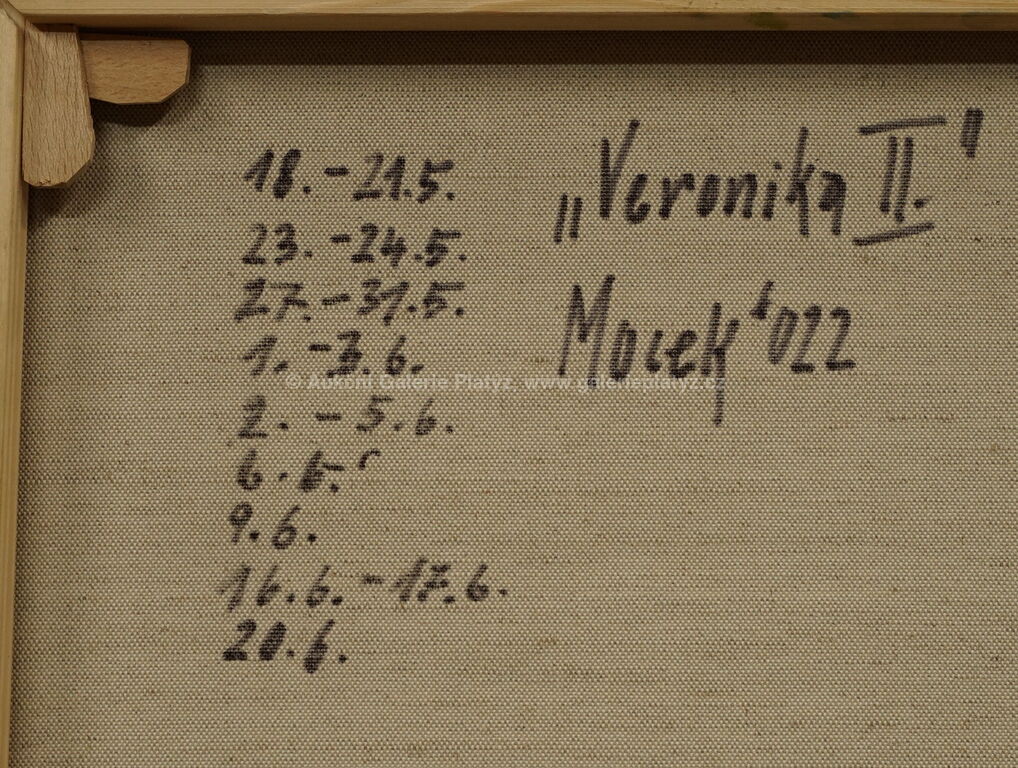 18.-21.5.
23.-24.5.
27.-31.5.
1.-3.6.
2. - 5.6.
6.6.
9.6.
16.6.-17.6.
20.6.
„Veronika II."
Mocek '022
© Aukční Galerie Platýz www.galerieplatyz.cz